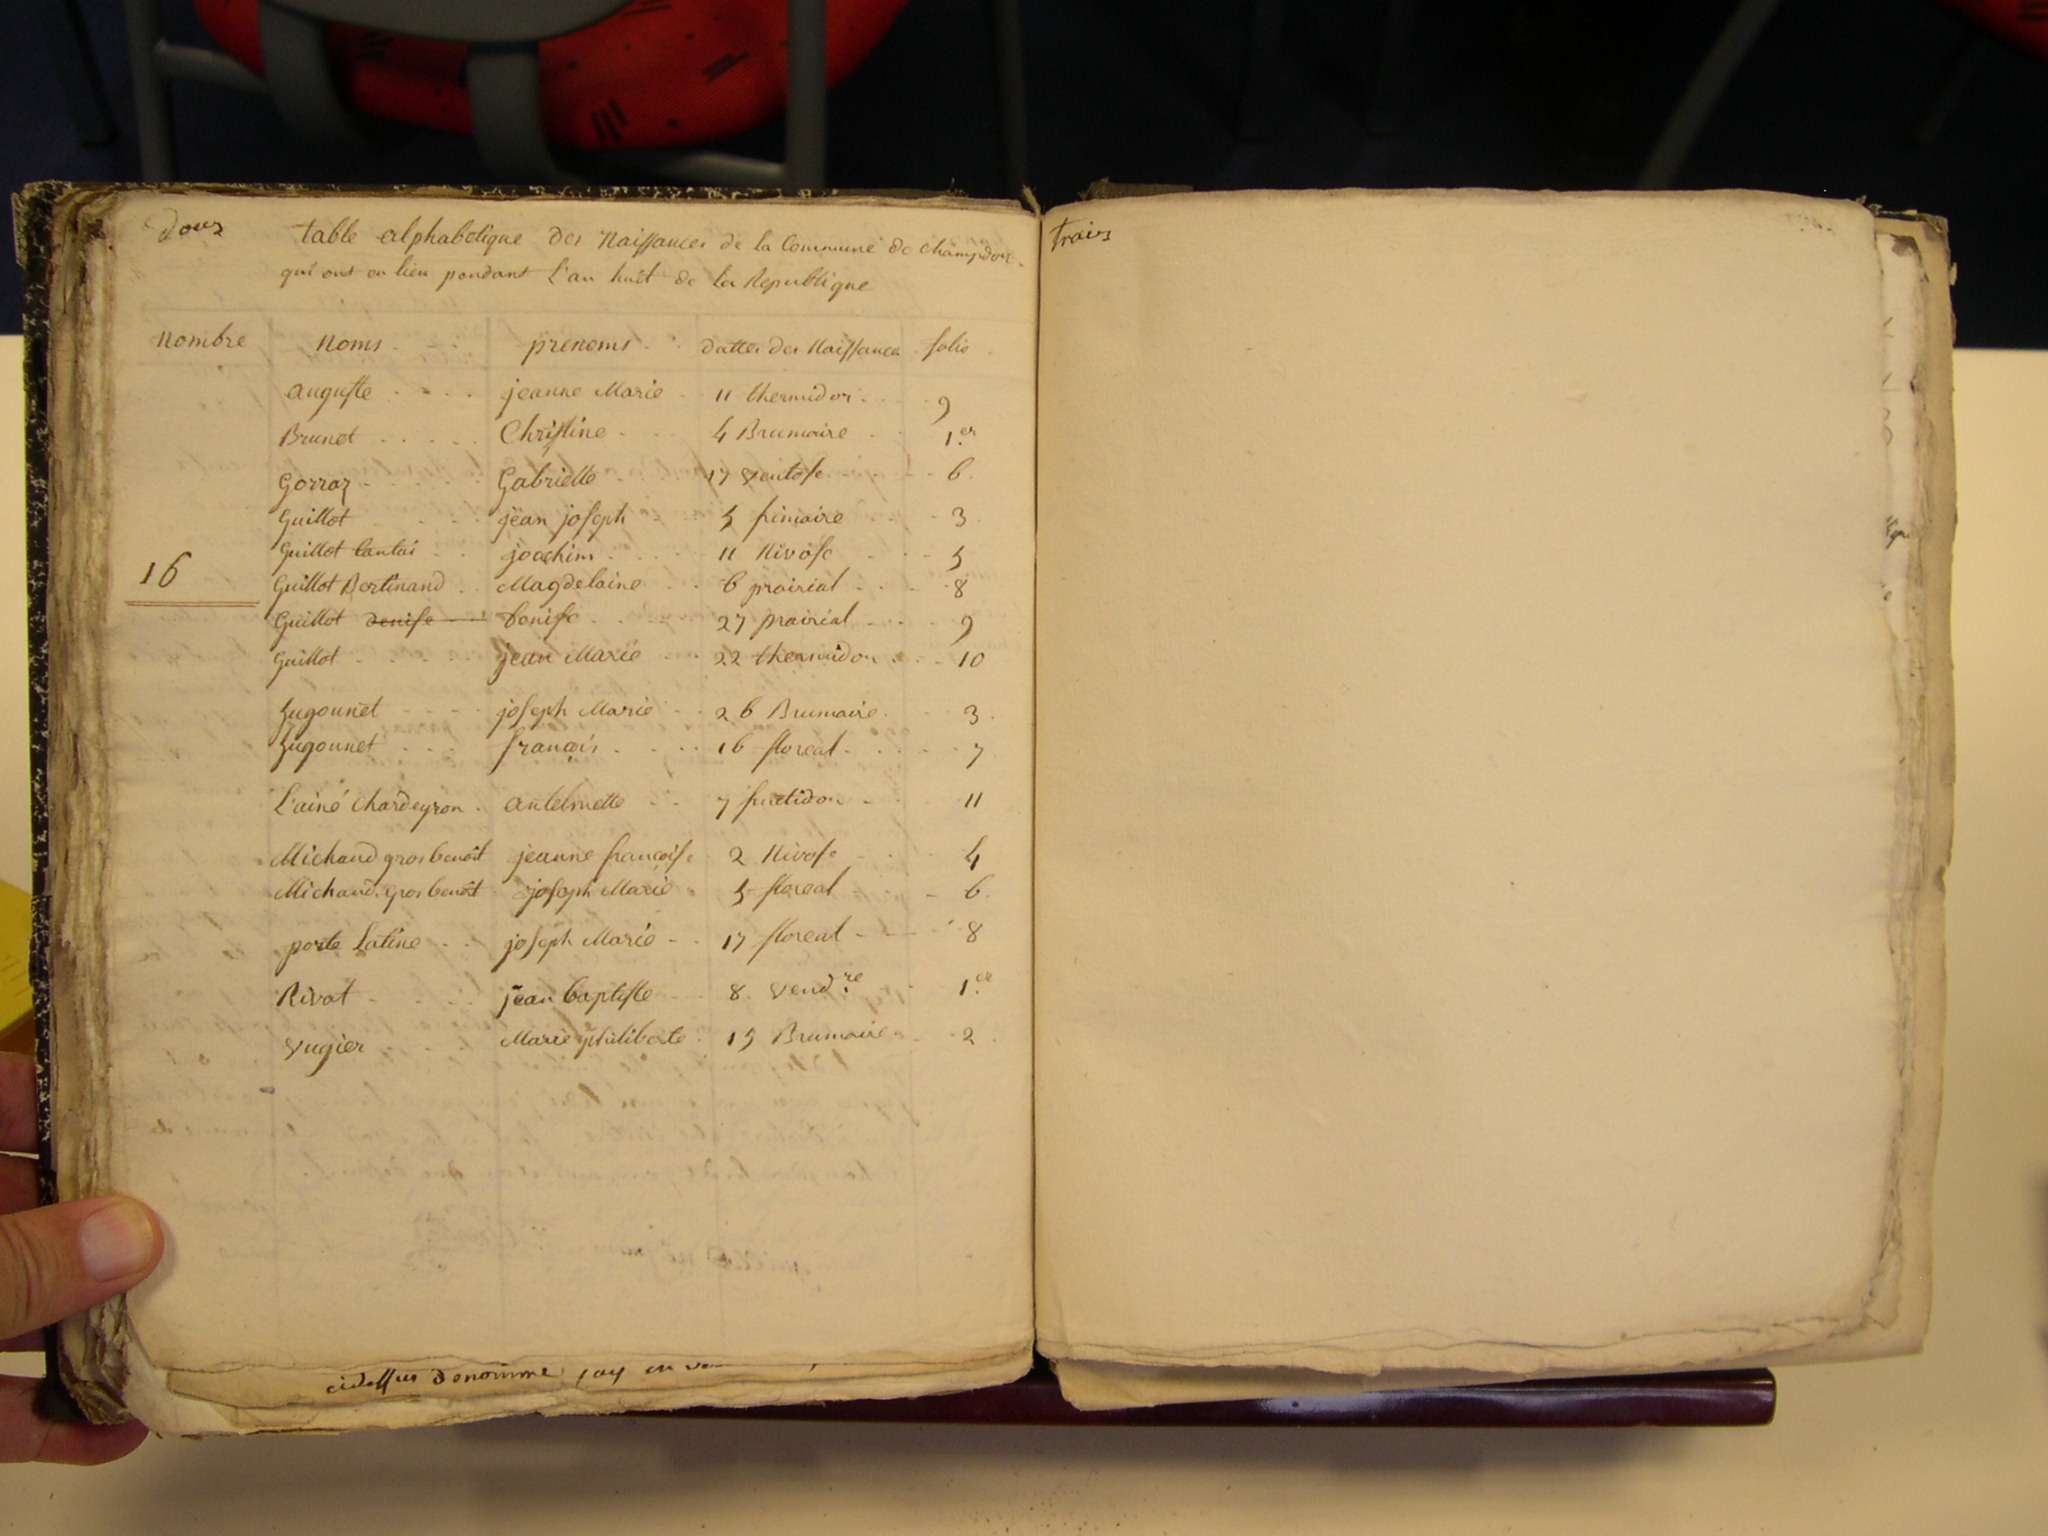 douz
table alphabetique des Naissances de la Commune de Champdor
qui ont eu lieu pendant l'an huit de la Republique
Nombre Noms prenoms dattes des Naissances folio
auguste jeanne Marie 11 thermidor 9
Brunet Christine 4 Brumaire 1.er
Gorraz Gabrielle 17 ventose 6
Guillot jean joseph 5 frimaire 3
Guillot tantai joachim 11 Nivose 5
16 Guillot Bertinand Magdelaine 6 prairial 8
Guillot denise Denise 27 prairial 9
Guillot jean Marie 22 thermidor 10
hugonnet joseph Marie 26 Brumaire 3
hugonnet françois 16 floreal 7
L'ainé Chardeyron antelmette 7 fructidor 11
Michaud gros benoît jeanne françoise 2 Nivose 4
Michaud gros benoît joseph Marie 5 floreal 6
porte Latine joseph Marie 17 floreal 8
Rivat jean baptiste 8 vend.re 1.er
vugier Marie philiberte 15 Brumaire 2
cidessus denommé
trois